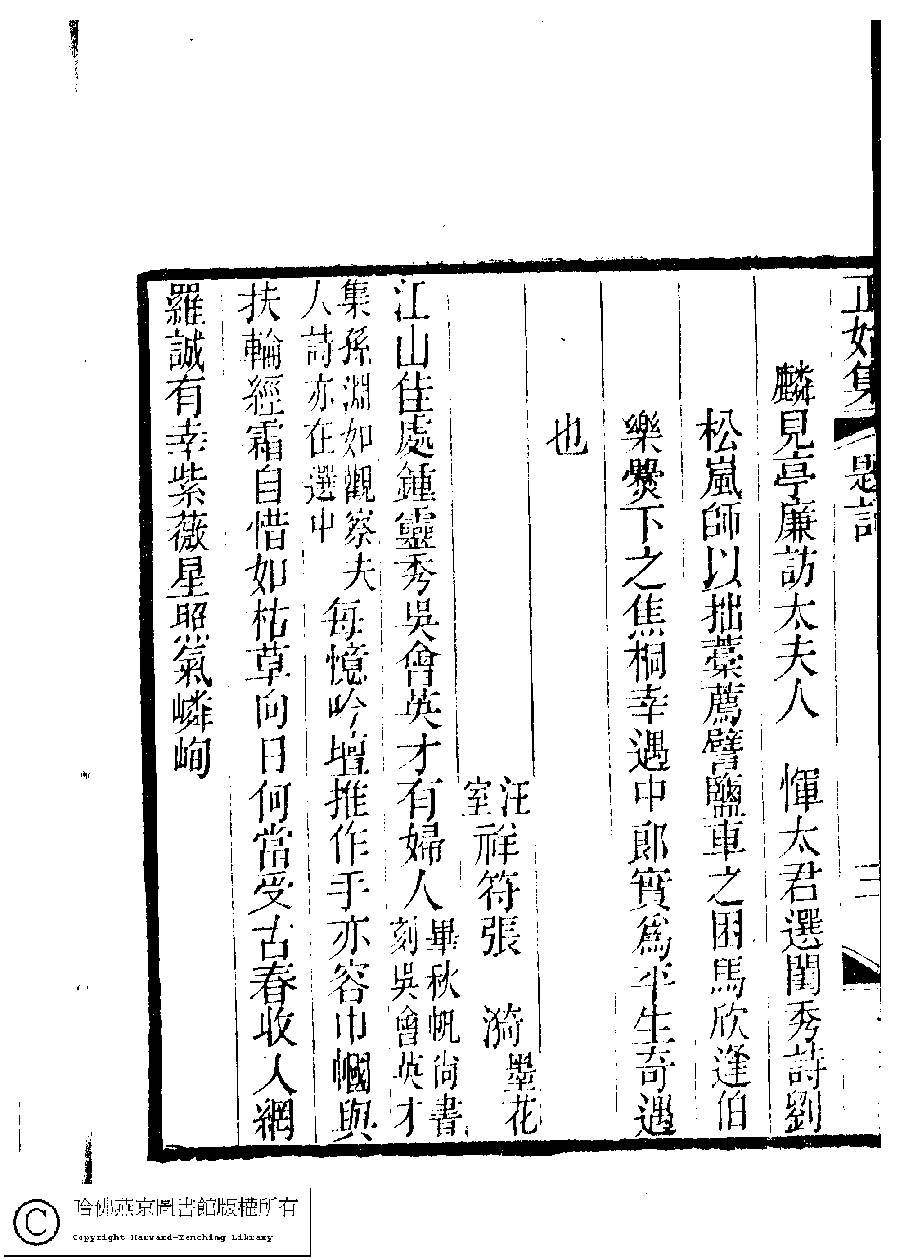 正始集 題詞 三
麟見亭廉訪太夫人 惲太君選閨秀詩劉
松嵐師以拙藁薦譬鹽車之困馬欣逢伯
樂爨下之焦桐幸遇中郎實爲平生奇遇
也
汪室祥符張 漪墨花
江山佳處鍾靈秀吳會英才有婦人畢秋帆尚書刻吳會英才
集孫淵如觀察夫人詩亦在選中每憶吟壇推作手亦容巾幗與
扶輪經霜自惜如枯草向日何當受古春收入網
羅誠有幸紫薇星照氣嶙峋
哈佛燕京圖書館版權所有
Copyright Harvard-Yenching Library